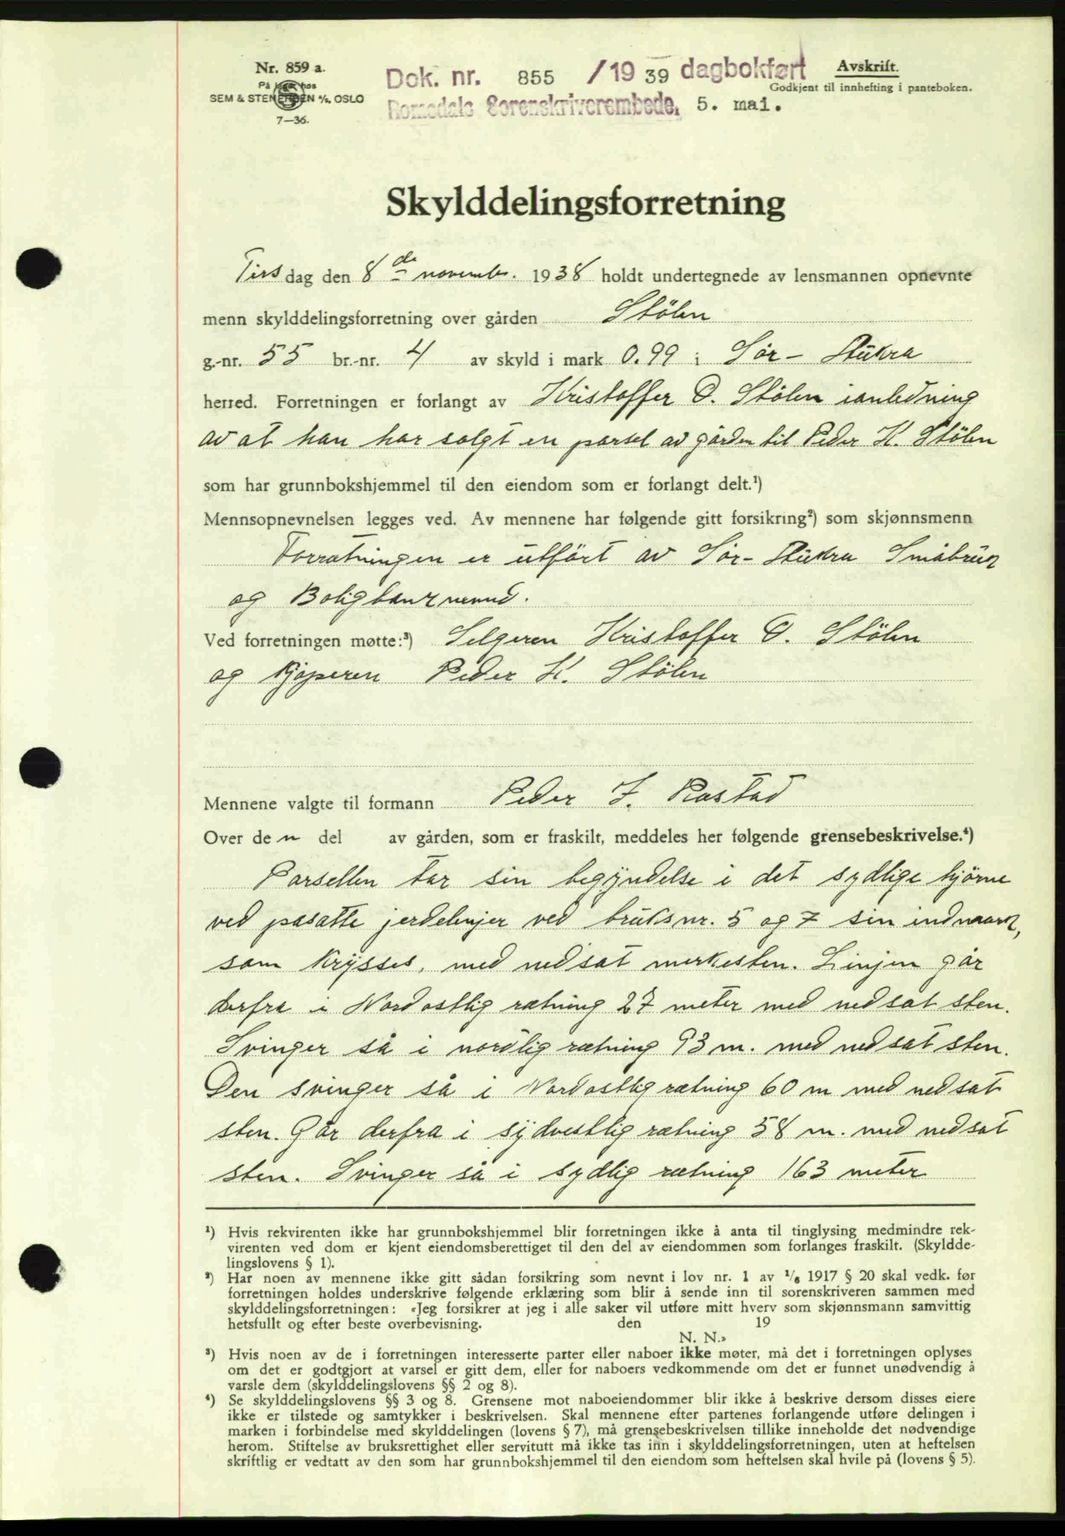 Nr. 859 a.
På lager hos
SEM & STENERSEN A/S, OSLO
7—36.
Dok. nr. 855 / 19 39 dagbokført
Romsdals Sorenskriverembede, 5. mai.
Avskrift.
Godkjent til innhefting i panteboken.
Skylddelingsforretning
Tirs dag den 8de novembr. 1938 holdt undertegnede av lensmannen opnevnte
menn skylddelingsforretning over gården Stölen
g.-nr. 55 br.-nr. 4 av skyld i mark 0.99 i Sør- Aukra
herred. Forretningen er forlangt av Kristoffer O. Stölen i anledning
av at han har solgt en parsel av gården til Peder K. Stölen
som har grunnbokshjemmel til den eiendom som er forlangt delt.¹)
Mennsopnevnelsen legges ved. Av mennene har følgende gitt forsikring²) som skjønnsmenn
Forratningen er utfört av Sør- Aukra Småbruk
og Boligbanknemnd.
Ved forretningen møtte:³) Selgeren Kristoffer O. Stölen
og Kjøperen Peder K. Stölen
Mennene valgte til formann Peder J. Rostad
Over den del av gården, som er fraskilt, meddeles her følgende grensebeskrivelse.⁴)
Parsellen tar sin begyndelse i det sydlige hjörne
ved påsatte jerdelinjer ved bruksnr. 5 og 7 sin indmark,
som krysses, med nedsat merkesten. Linjen går
derfra i Nordostlig rætning 27 meter med nedsat sten.
Svinger så i nordlig rætning 93 m. med nedsat sten.
Den svinger så i Nordostlig rætning 60 m med nedsat
sten. Går derfra i sydvestlig rætning 58 m. med nedsat
sten. Svinger så i sydlig rætning 163 meter
¹) Hvis rekvirenten ikke har grunnbokshjemmel blir forretningen ikke å anta til tinglysing medmindre rek-
virenten ved dom er kjent eiendomsberettiget til den del av eiendommen som forlanges fraskilt. (Skyldde-
lingslovens § 1).
²) Har noen av mennene ikke gitt sådan forsikring som nevnt i lov nr. 1 av 1/6 1917 § 20 skal vedk. før
forretningen holdes underskrive følgende erklæring som blir å sende inn til sorenskriveren sammen med
skylddelingsforretningen: «Jeg forsikrer at jeg i alle saker vil utføre mitt hverv som skjønnsmann samvittig
hetsfullt og efter beste overbevisning. den 19
N. N.»
³) Hvis noen av de i forretningen interesserte parter eller naboer ikke møter, må det i forretningen oplyses
om det er godtgjort at varsel er gitt dem, eller for naboers vedkommende om det er funnet unødvendig å
varsle dem (skylddelingslovens §§ 2 og 8).
⁴) Se skylddelingslovens §§ 3 og 8. Grensene mot naboeiendommer blir ikke å beskrive dersom disses eiere
ikke er tilstede og samtykker i beskrivelsen. Skal mennene efter partenes forlangende utføre delingen i
marken i forbindelse med skylddelingen (lovens § 7), må grensebeskrivelsen tillike inneholde det nødvendige
herom. Stiftelse av bruksrettighet eller servitutt må ikke tas inn i skylddelingsforretningen, uten at heftelsen
skriftlig er vedtatt av den som har grunnbokshjemmel til den eiendom som heftelsen skal hvile på (lovens § 5).